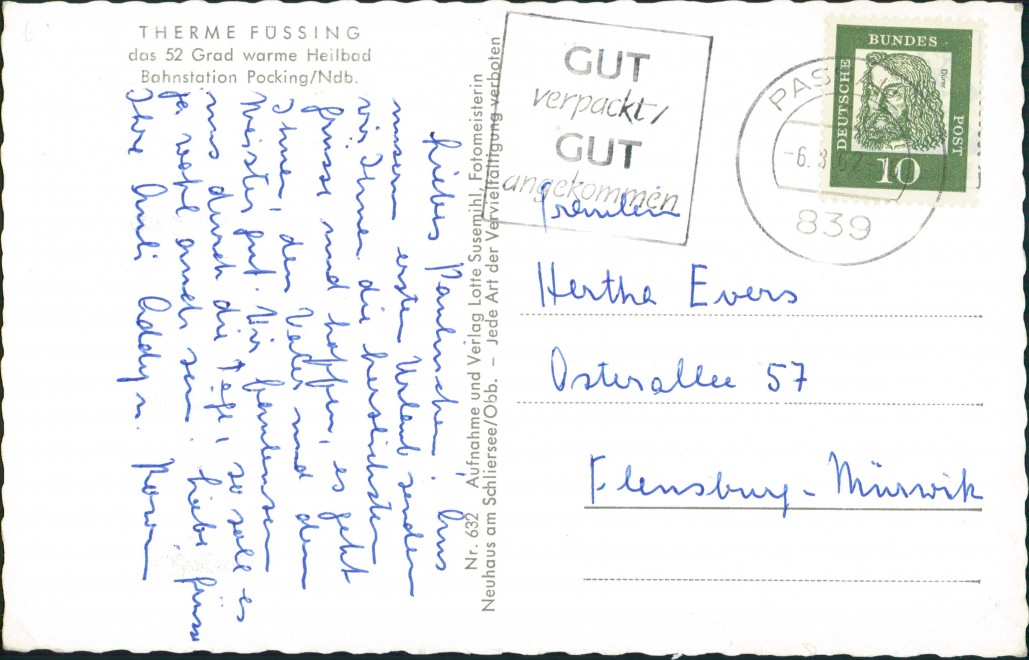 THERME FÜSSING
das 52 Grad warme Heilbad
Bahnstation Pocking/Ndb.
unserem ersten Urlaub senden
wir Ihnen die herzlichsten
Grüsse und hoffen, es geht
Ihnen, den Vater und dem
Meister gut. Wir
uns durch die Tage, so soll es
ja wohl auch sein. Liebe Grüsse
Ihre
Nr. 632 Aufnahme und Verlag Lotte Susemihl, Fotomeisterin
Neuhaus am Schliersee/Obb. – Jede Art der Vervielfältigung verboten
GUT
verpackt/
GUT
angekommen
PASSAU
-6.8.62
839
DEUTSCHE
BUNDES
POST
Dürer
10
Fräulein
Hertha Evers
Osterallee 57
Flensburg - Mürwik